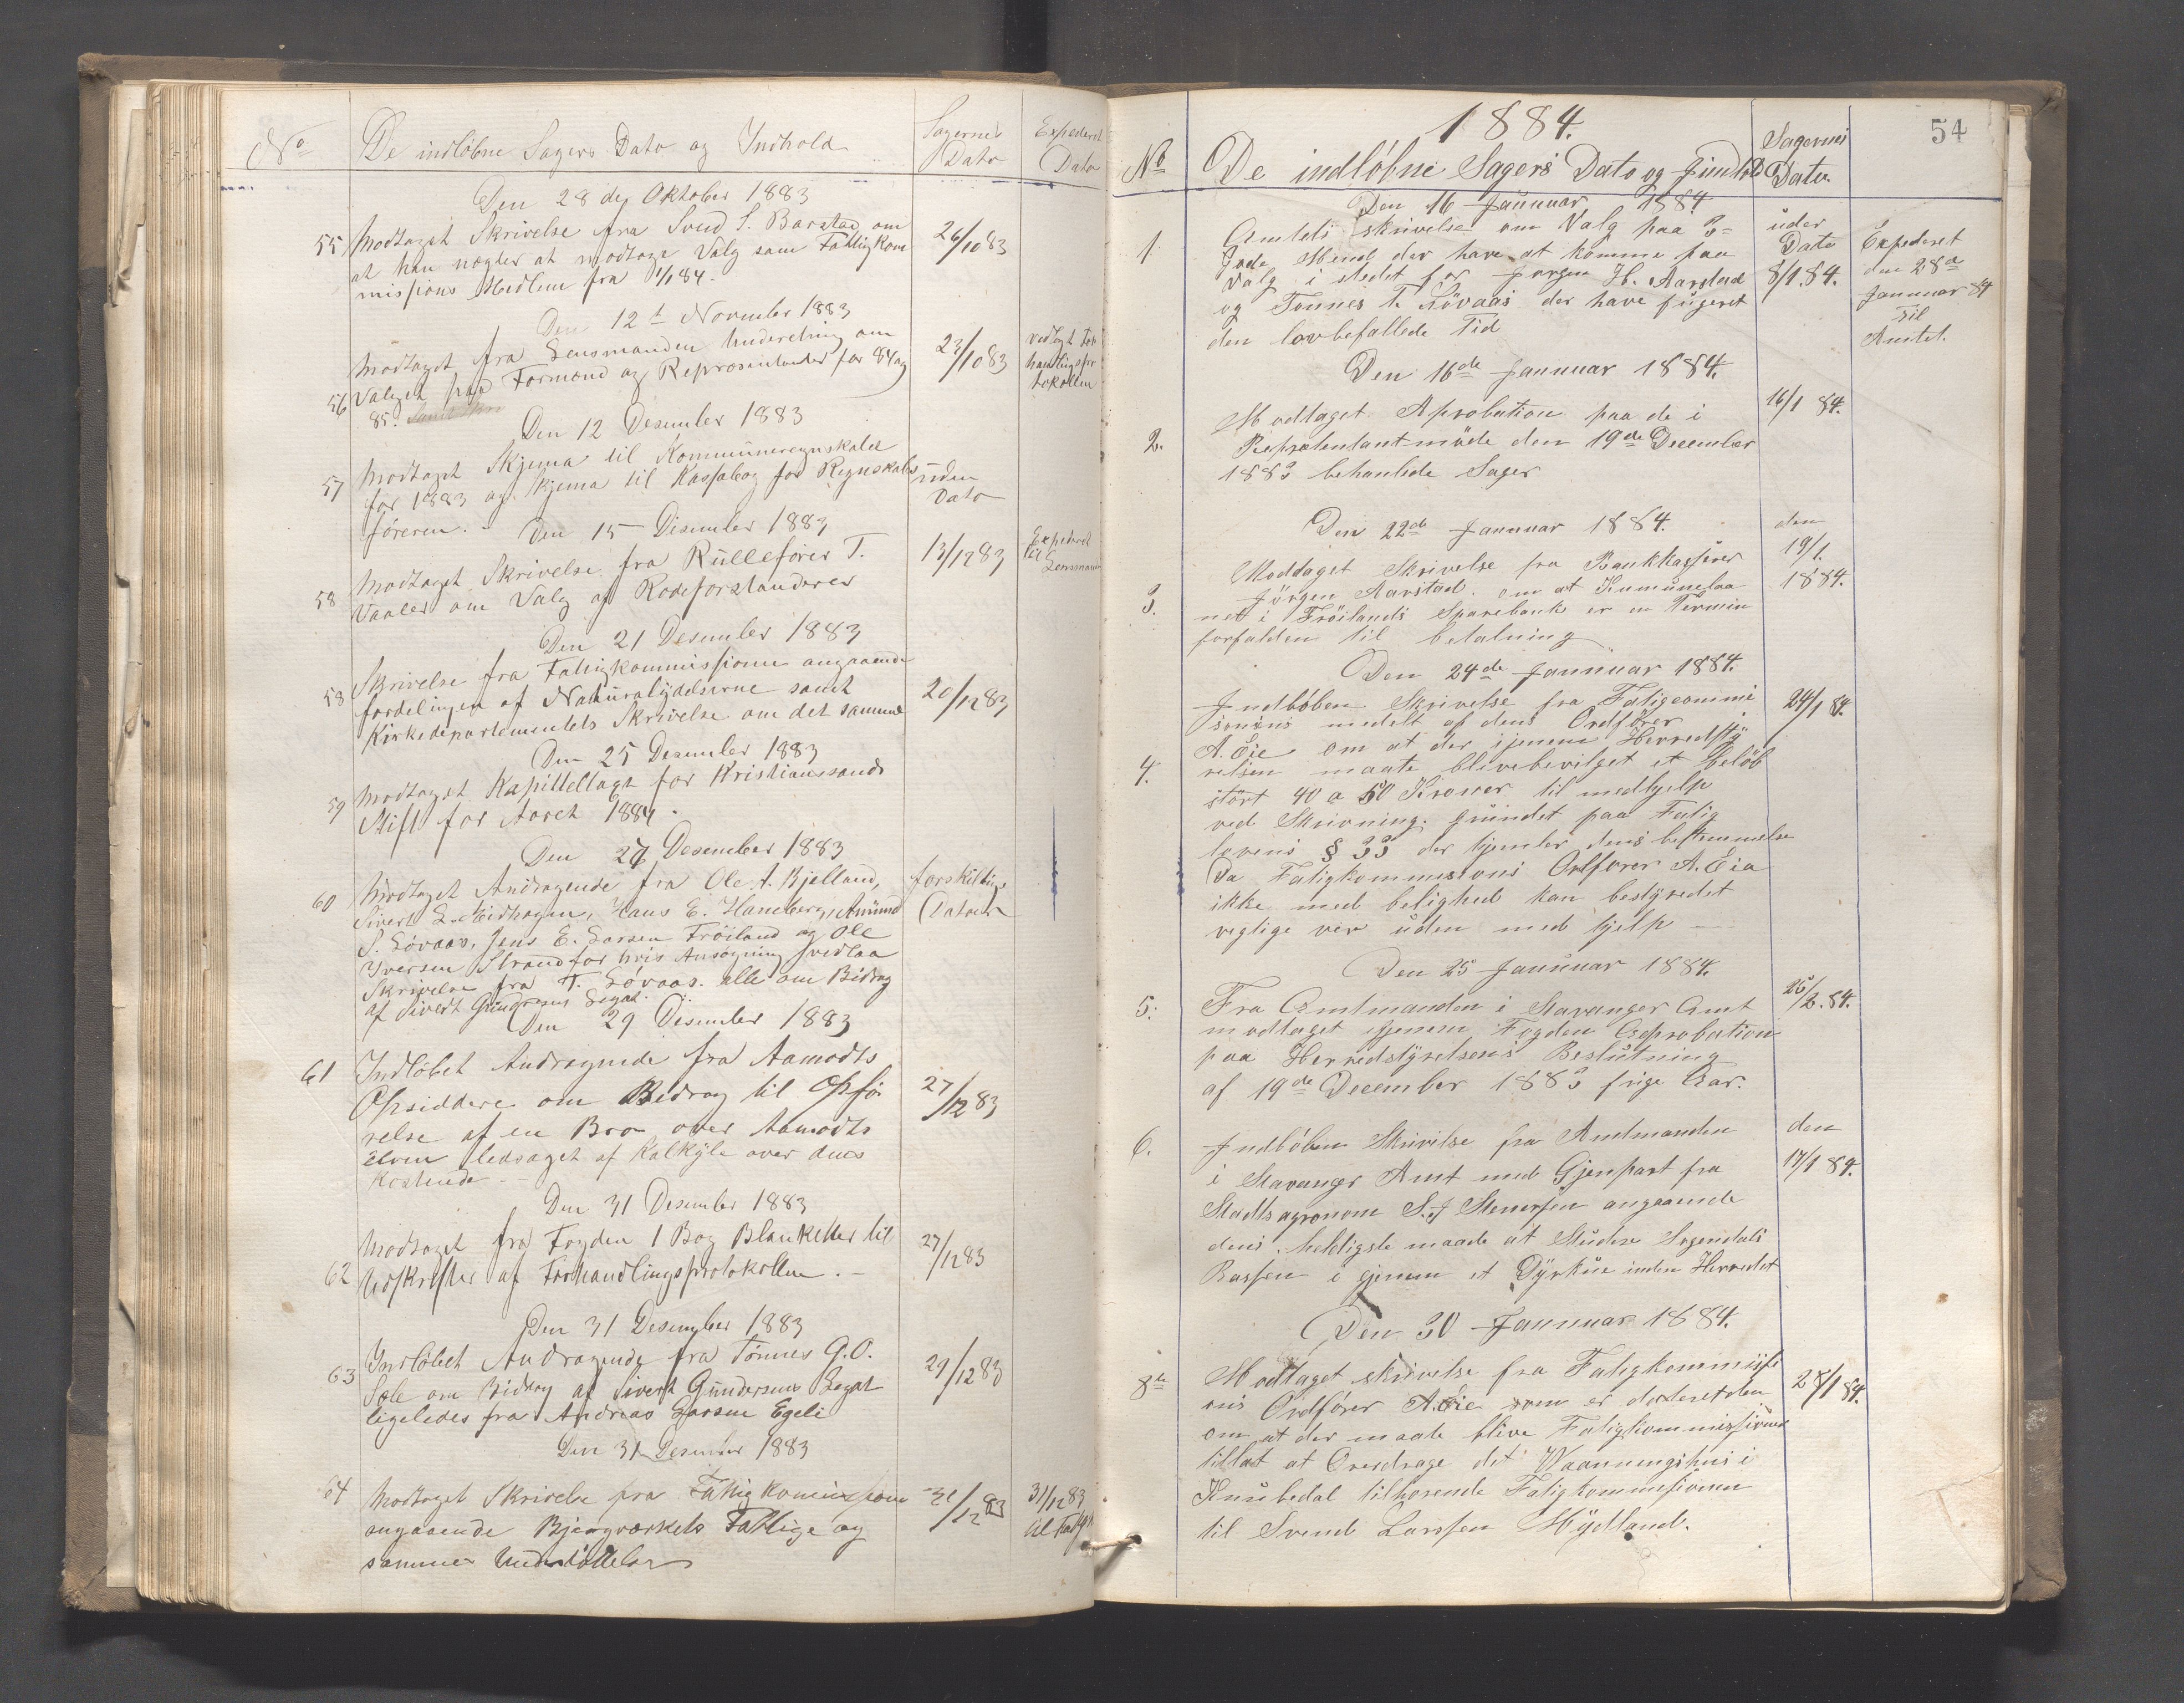 No De indløbne Sagers Dato og Indhold Sagernes Dato Expederet Dato
Den 28 de Oktober 1883
55 Modtaget Skrivelse fra Svend S. Barstad om 26/10 83
at han nægter at modtage Valg som Fattigkom
missions Medlem fra 1/1 84.
Den 12t November 1883
Modtaget fra Lensmanden Underetning om 23/10 83 vedlagt For
56 Valget paa Formænd og Repræsentanter for 84 og handlingspro
85. tokollen
Den 12 Desember 1883
57 Modtaget Skjema til Kommuneregnskabet
for 1883 og Skjema til Kassabog for Regnskabs uden
føreren. Dato
Den 15 Disember 1883
Modtaget Skrivelse fra Rullefører T. 13/12 83 Expederet til
58 Vaaler om Valg af Rodeforstanderer Lensmanden
Den 21 Desember 1883
58 Skrivelse fra Fattigkommissionen angaaende
fordelingen af Naturalydelserne samt 20/12 83
Kirkedepartementets Skrivelse om det samme
Den 25 Desember 1883
59 Modtaget Kapitteltagt for Kristianssands
Stift for Aaret 1884.
Den 27 Desember 1883
60 Modtaget Andragende fra Ole A. Bjelland, forskillige
Sivert L. Midhagen, Hans E. Haneberg, Amund Datoer
S. Løvaas, Jens E. Larsen Frøiland og Ole
Iversen Strand for hvis Ansøgning vedlaa
Skrivelse fra T. Løvaas. alle om Bidrag
af Sivert Gundersens Legat.
Den 29 Disember 1883
61 Indløbet Andragende fra Aamodts
Opsiddere om Bidrag til Opfø 27/12 83
relse af en Bro over Aamodts
elven ledsaget af Kalkyle over dens
Kostende
Den 31 Desember 1883
Modtaget fra Fogden 1 Bog Blanketter til 27/12 83
62 Udskrifter af Forhandlingsprotokollen.
Den 31 Desember 1883
63 Indløbet Andragende fra Tønnes G.O. 29/12 83
Sæle om Bidrag af Sivert Gundersens Legat
ligeledes fra Andreas Larsen Egeli
Den 31 Desember 1883
64 Modtaget Skrivelse fra Fattigkommissionen 31/12 83 31/12 83
angaaende Bjergværkets Fattige og
sammes Understøttelse
54
1884.
No De indløbne Sagers Dato og Jnnhold Sagernes Dato
Den 16 Januuar 1884
1. Amtets skrivelse om Valg paa 3 uder
Gode Mend der have at komme paa Dato Expederet
Valg i stedet for Jørgen H. Aarstad 8/1.84. den 28de
og Tønnes T. Løvaas der have fugeret Januuar 84
den lovbefallede Tid til Amtet.
Den 16de Januuar 1884.
Modtaget Aprobation paa de i 16/1 84.
2. Represtentantmøde den 19de December
1883 behanlede Sager
Den 22de Januuar 1884. den
Moddaget Skrivelse fra Bankkasserer 19/1.
3. Jørgen Aarstad. om at Kumunelaa 1884.
net i Frøilands Sparebank er en Termin
forfalden til betalning
Den 24de Januuar 1884.
Jndbøben Skrivelse fra Fatigcommi 24/1 84.
sionens medelt af dens Ordfører
A. Eie om at der ijenem Herredsty
4. relsen maate blivebevilget et Beløb
stört 40 a 50 Kroner til medhjelp
ved Skrivning. grundet paa Fatig
lovens § 33 der hjemler dens bestemmelse
Da Fatigkommisions Ordfører A. Eia
ikke med belighed kan bestyredet
vegtige verv uden med hjelp
Den 25 Januuar 1884.
5. Fra Amtmanden i Stavanger Amt 25/2.84.
modtaget ijenem Fogden Aprobation
paa Herredstyrelsens Beslutning
af 19de December 1883 frige Aar.
6. Jndbøben Skrivelse fra Amtmanden den
i Stavanger Amt med Gjenpart fra 17/1 84.
Stadtsagronom S.J Stenersen angaaende
dens heldigste maade at Studere Sogendals
Bassen i gjenem et Dyrkue inden Herredet
Den 30 Januuar 1884.
8de Modtaget skrivelse fra Fatigkommissi 28/1 84.
ons Ordfører A. Eie som er dateret den
om at der maate blive Fatigkommissionen
tillat at Overdrage det Waanningshus i
Knubedal tilhørende Fatigkommisionen
til Svend Larssen Mydland.